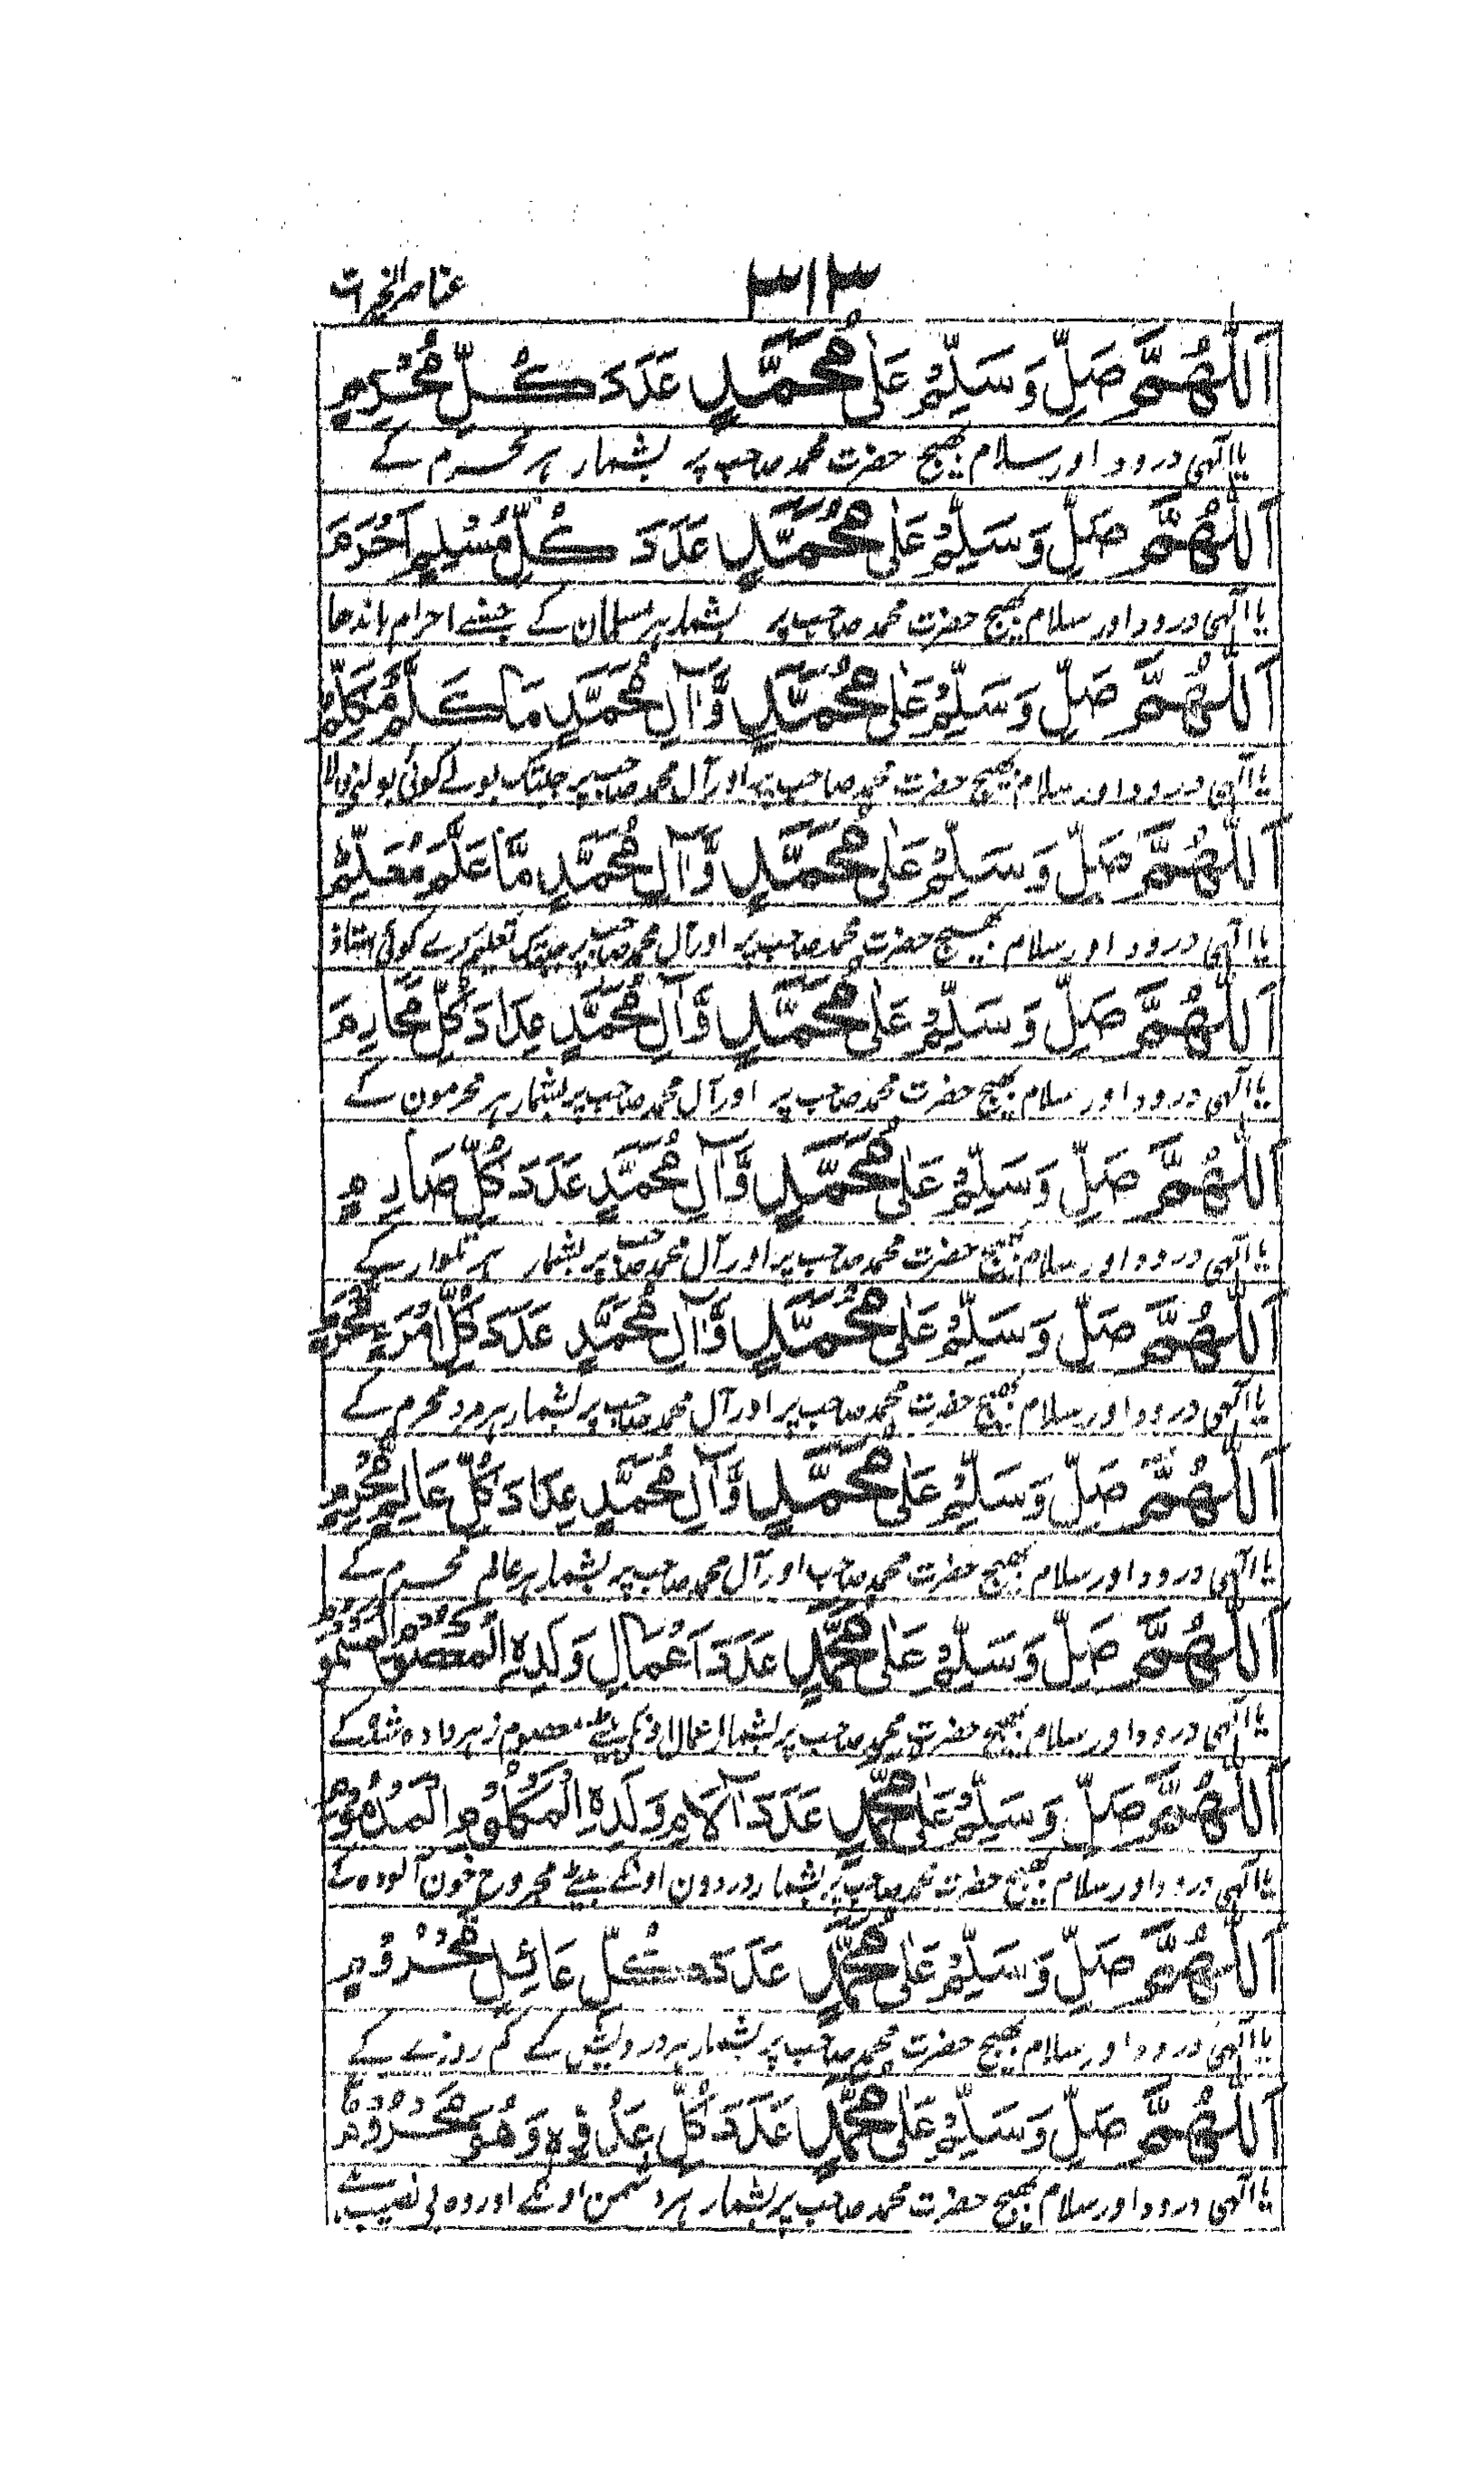 ۳۱۳ عناصر الخیرات
اَللّٰهُمَّ صَلِّ وَسَلِّمْ عَلٰی مُحَمَّدٍ عَدَدَ كُلِّ مُحْرِمٍ
یا الٰہی درود اور سلام بھیج حضرت محمد صاحب پر بشمار ہر محرم کے
اَللّٰهُمَّ صَلِّ وَسَلِّمْ عَلٰی مُحَمَّدٍ عَدَدَ كُلِّ مُسْلِمٍ اَحْرَمَ
یا الٰہی درود اور سلام بھیج حضرت محمد صاحب پر بشمار ہر مسلمان کے جسنے احرام باندھا
اَللّٰهُمَّ صَلِّ وَسَلِّمْ عَلٰی مُحَمَّدٍ وَّاٰلِ مُحَمَّدٍ مَا كَلَّمَ مُكَلِّمٌ
یا الٰہی درود اور سلام بھیج حضرت محمد صاحب پر اور آل محمد صاحب پر جبتک بولے کوئی بولنے والا
اَللّٰهُمَّ صَلِّ وَسَلِّمْ عَلٰی مُحَمَّدٍ وَّاٰلِ مُحَمَّدٍ مَّا عَلَّمَ مُعَلِّمٌ
یا الٰہی درود اور سلام بھیج حضرت محمد صاحب پر اور آل محمد صاحب پر جبتک تعلیم کرے کوئی استاذ
اَللّٰهُمَّ صَلِّ وَسَلِّمْ عَلٰی مُحَمَّدٍ وَّاٰلِ مُحَمَّدٍ عِدَادَ كُلِّ مَحَارِمَ
یا الٰہی درود اور سلام بھیج حضرت محمد صاحب پر اور آل محمد صاحب پر بشمار ہر محرمون کے
اَللّٰهُمَّ صَلِّ وَسَلِّمْ عَلٰی مُحَمَّدٍ وَّاٰلِ مُحَمَّدٍ عَدَدَ كُلِّ صَارِمٍ
یا الٰہی درود اور سلام بھیج حضرت محمد صاحب پر اور آل محمد صاحب پر بشمار ہر تلوار کے
اَللّٰهُمَّ صَلِّ وَسَلِّمْ عَلٰی مُحَمَّدٍ وَّاٰلِ مُحَمَّدٍ عَدَدَ كُلِّ
یا الٰہی درود اور سلام بھیج حضرت محمد صاحب پر اور آل محمد صاحب پر بشمار ہر مرد محرم کے
اَللّٰهُمَّ صَلِّ وَسَلِّمْ عَلٰی مُحَمَّدٍ وَّاٰلِ مُحَمَّدٍ عِدَادَ كُلِّ عَالِمٍ مُحْرِمٍ
یا الٰہی درود اور سلام بھیج حضرت محمد صاحب اور آل محمد صاحب پر بشمار ہر عالم محرم کے
اَللّٰهُمَّ صَلِّ وَسَلِّمْ عَلٰی مُحَمَّدٍ عَدَدَ اَعْمَالِ وَلَدِهِ الْمَعْصُوْمِ الْمَسْمُوْمِ
یا الٰہی درود اور سلام بھیج حضرت محمد صاحب پر بشمار اعمال اونکے بیٹے معصوم زہر دادہ شدہ کے
اَللّٰهُمَّ صَلِّ وَسَلِّمْ عَلٰی مُحَمَّدٍ عَدَدَ اٰلَامِ وَلَدِهِ الْمَكْلُوْمِ
یا الٰہی درود اور سلام بھیج حضرت محمد صاحب پر بشمار دردون اونکے بیٹے مجروح خون آلودہ کے
اَللّٰهُمَّ صَلِّ وَسَلِّمْ عَلٰی مُحَمَّدٍ عَدَدَ كُلِّ عَائِلٍ مَحْرُوْمٍ
یا الٰہی درود اور سلام بھیج حضرت محمد صاحب پر بشمار ہر درویش کے کم روزے کے
اَللّٰهُمَّ صَلِّ وَسَلِّمْ عَلٰی مُحَمَّدٍ عَدَدَ كُلِّ عَدُوِّهٖ وَهُوَ مَحْرُوْمٌ
یا الٰہی درود اور سلام بھیج حضرت محمد صاحب پر بشمار ہر دشمن اونکے اور وہ بی نصیب ہے